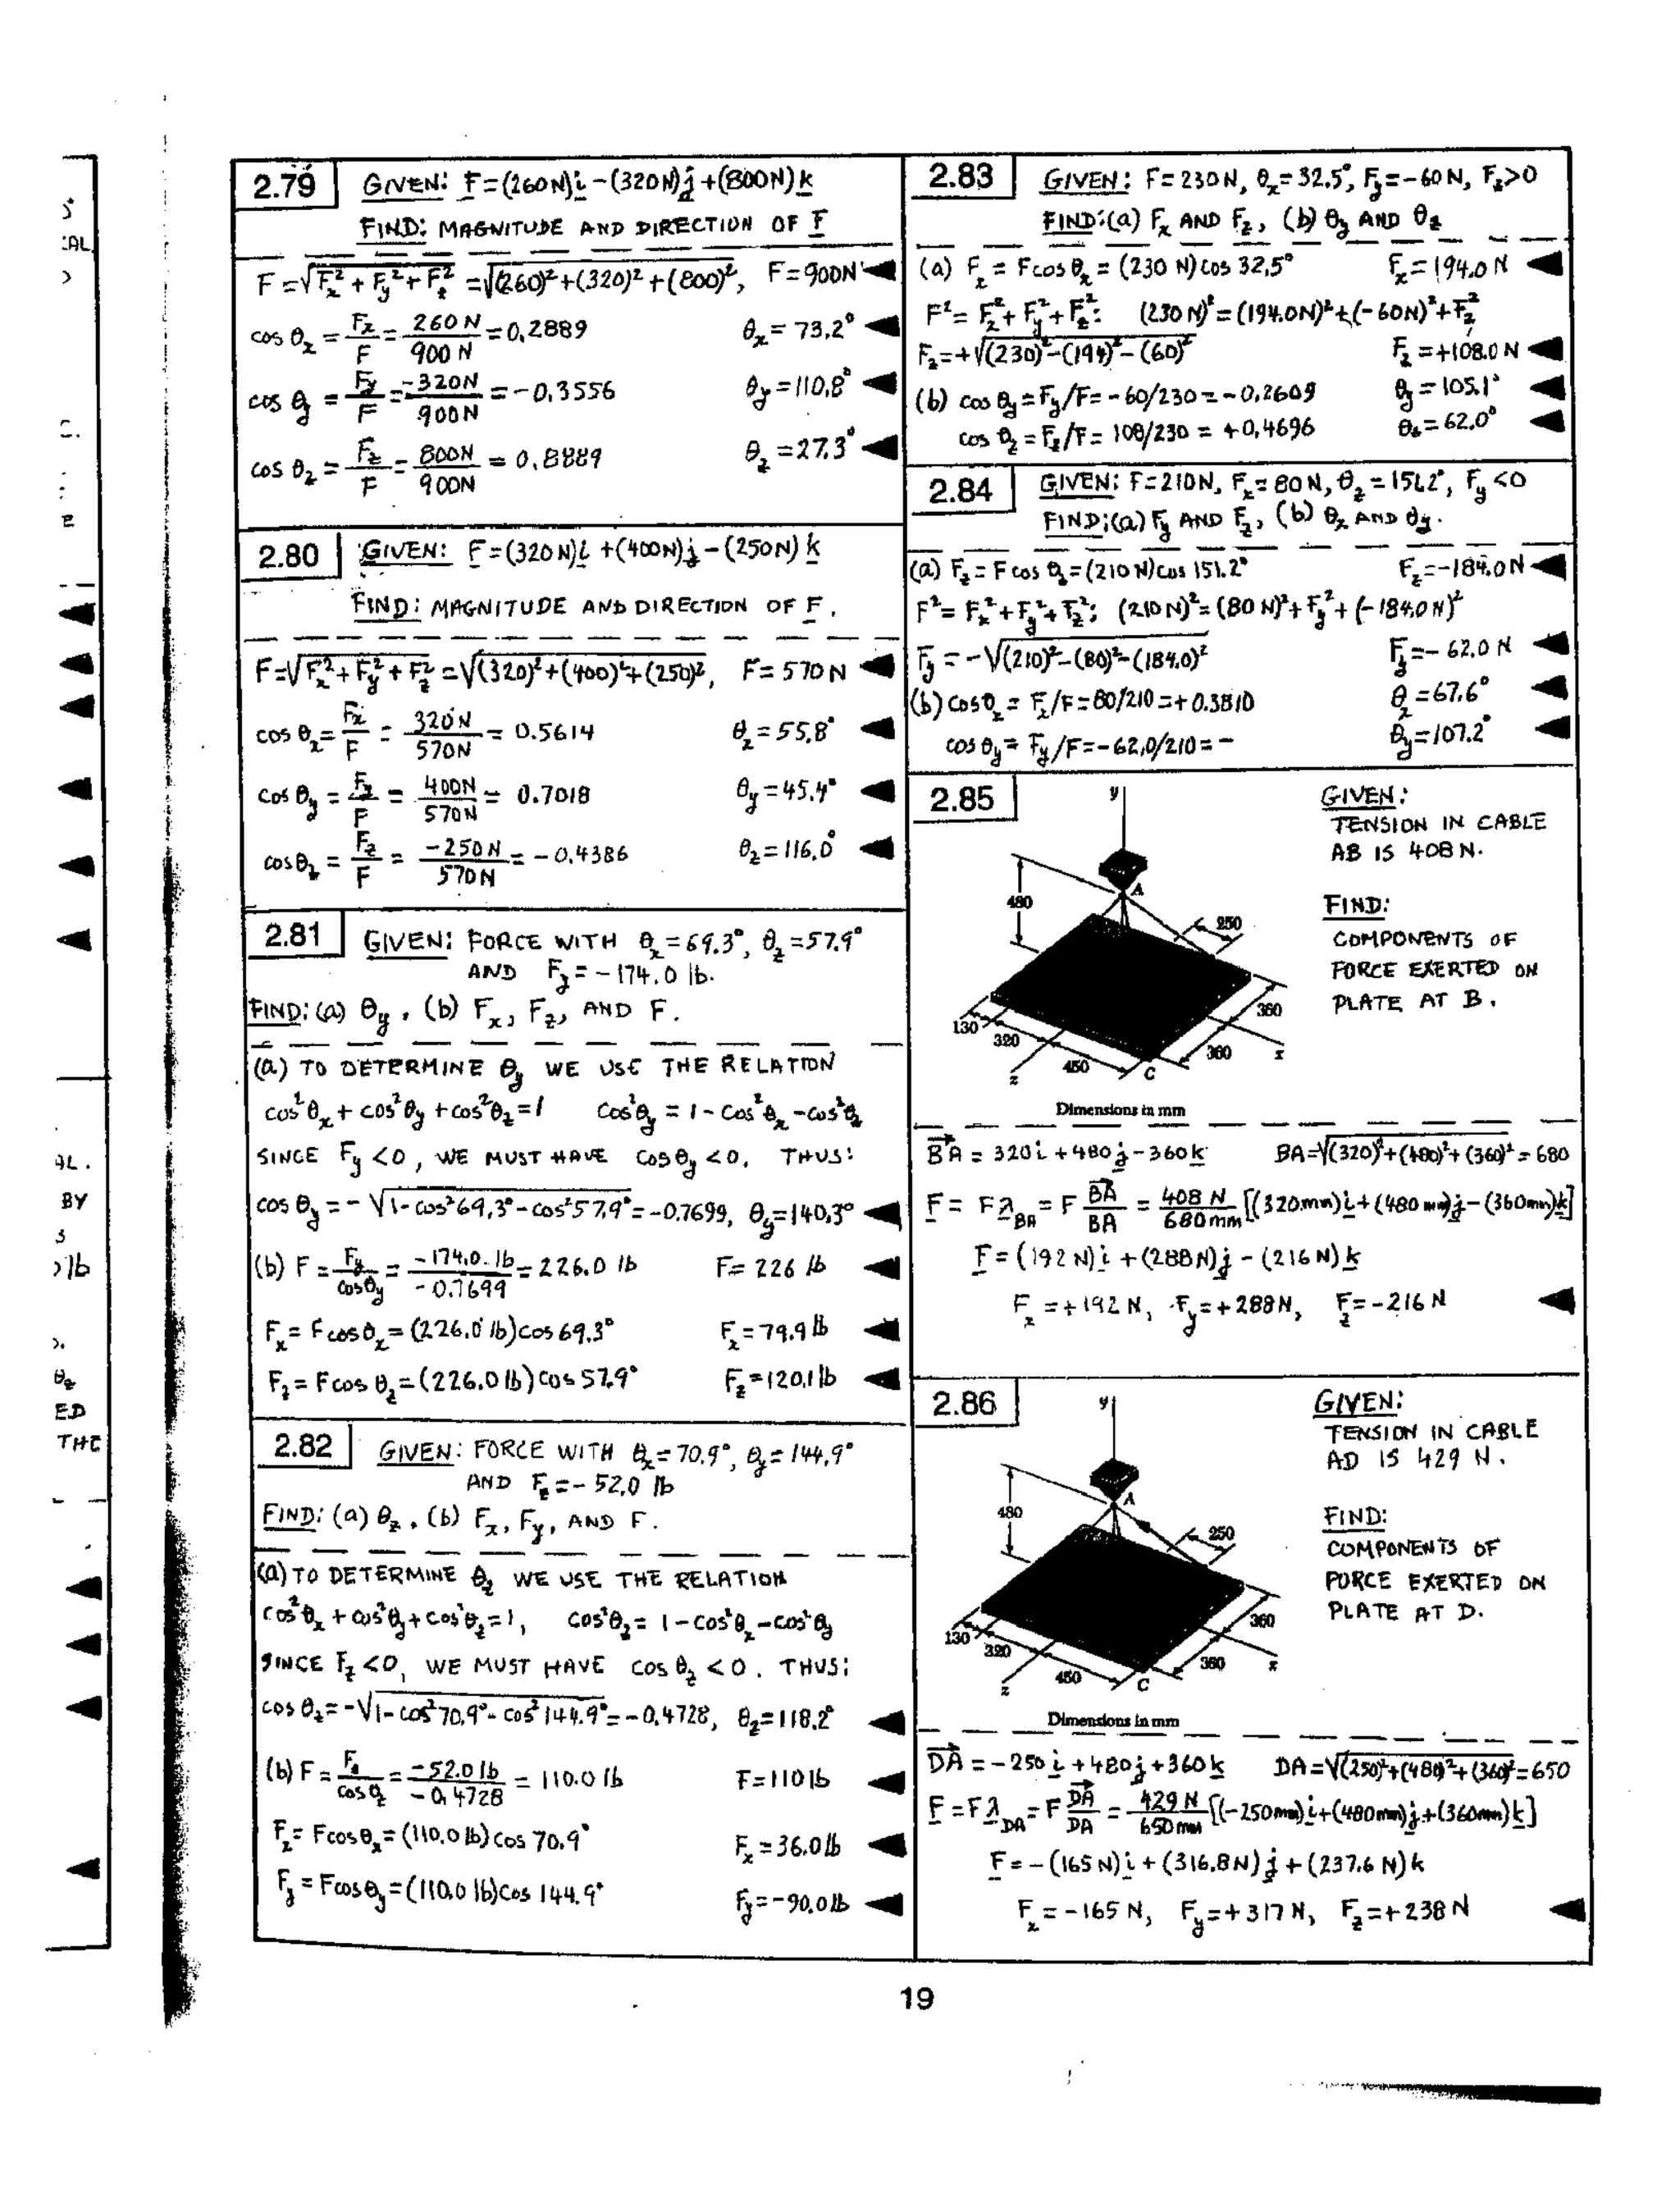 2.79 GIVEN: F=(260N)i-(320N)j+(800N)k
FIND: MAGNITUDE AND DIRECTION OF F
F=√Fx²+Fy²+Fz² =√(260)²+(320)²+(800)², F=900N
cos θx = Fx/F = 260 N/900 N = 0.2889 θx = 73.2°
cos θy = Fy/F = -320N/900N = -0.3556 θy = 110.8°
cos θz = Fz/F = 800N/900N = 0.8889 θz = 27.3°
2.80 GIVEN: F=(320N)i+(400N)j-(250N)k
FIND: MAGNITUDE AND DIRECTION OF F.
F=√Fx²+Fy²+Fz² =√(320)²+(400)²+(250)², F=570 N
cos θx = Fx/F = 320N/570N = 0.5614 θx = 55.8°
cos θy = Fy/F = 400N/570N = 0.7018 θy = 45.4°
cos θz = Fz/F = -250N/570N = -0.4386 θz = 116.0°
2.81 GIVEN: FORCE WITH θx = 69.3°, θz = 57.9°
AND Fy = -174.0 lb.
FIND: (a) θy, (b) Fx, Fz, AND F.
(a) TO DETERMINE θy WE USE THE RELATION
cos²θx + cos²θy + cos²θz = 1 cos²θy = 1 - cos²θx - cos²θz
SINCE Fy <0, WE MUST HAVE cos θy < 0. THUS:
cos θy = -√1-cos²69.3°-cos²57.9° = -0.7699, θy=140.3°
(b) F = Fy/cosθy = -174.0 lb/-0.7699 = 226.0 lb F= 226 lb
Fx= F cosθx = (226.0 lb)cos 69.3° Fx = 79.9 lb
Fz= Fcos θz = (226.0 lb) cos 57.9° Fz = 120.1 lb
2.82 GIVEN: FORCE WITH θx = 70.9°, θy = 144.9°
AND Fz = -52.0 lb
FIND: (a) θz, (b) Fx, Fy, AND F.
(a) TO DETERMINE θz WE USE THE RELATION
cos²θx + cos²θy + cos²θz = 1, cos²θz = 1 - cos²θx - cos²θy
SINCE Fz <0, WE MUST HAVE cos θz < 0. THUS:
cos θz = -√1-cos²70.9°-cos²144.9° = -0.4728, θz=118.2°
(b) F = Fz/cosθz = -52.0 lb/-0.4728 = 110.0 lb F=110 lb
Fx= Fcosθx = (110.0 lb) cos 70.9° Fx = 36.0 lb
Fy = Fcosθy = (110.0 lb)cos 144.9° Fy = -90.0 lb
2.83 GIVEN: F= 230N, θx= 32.5°, Fy=-60 N, Fz>0
FIND: (a) Fx AND Fz, (b) θy AND θz
(a) Fx = Fcosθx = (230 N) cos 32.5° Fx = 194.0 N
F²= Fx²+Fy²+Fz²: (230 N)² = (194.0N)²+(-60N)²+Fz²
Fz=+√(230)²-(194)²-(60)² Fz = +108.0 N
(b) cos θy = Fy/F = -60/230 = -0.2609 θy = 105.1°
cos θz = Fz/F = 108/230 = +0.4696 θz = 62.0°
2.84 GIVEN: F=210N, Fx= 80N, θz = 151.2°, Fy <0
FIND: (a) Fy AND Fz, (b) θx AND θy.
(a) Fz = F cos θz = (210 N)cos 151.2° Fz=-184.0N
F²= Fx²+Fy²+Fz²; (210 N)² = (80 N)²+Fy²+(-184.0 N)²
Fy = -√(210)²-(80)²-(184.0)² Fy = -62.0 N
(b) cosθx = Fx/F = 80/210 = +0.3810 θx = 67.6°
cos θy = Fy/F = -62.0/210 = - θy = 107.2°
2.85 GIVEN:
TENSION IN CABLE
AB IS 408 N.
FIND:
COMPONENTS OF
FORCE EXERTED ON
PLATE AT B.
y
A
480
250
360
130
320
360
450
C
x
z
Dimensions in mm
BA = 320i+480j-360k BA=√(320)²+(480)²+(360)² = 680
F = FλBA = F BA/BA = 408 N/680mm [(320mm)i+(480mm)j-(360mm)k]
F = (192 N)i+(288N)j-(216 N)k
Fx = +192 N, Fy = +288N, Fz = -216 N
2.86 GIVEN:
TENSION IN CABLE
AD IS 429 N.
FIND:
COMPONENTS OF
FORCE EXERTED ON
PLATE AT D.
y
A
480
250
360
130
320
360
450
C
x
z
Dimensions in mm
DA = -250i+480j+360k DA=√(250)²+(480)²+(360)² = 650
F = FλDA = F DA/DA = 429 N/650mm [(-250mm)i+(480mm)j+(360mm)k]
F = -(165 N)i+(316.8N)j+(237.6 N)k
Fx = -165 N, Fy = +317 N, Fz = +238 N
19
BY
ED
THE